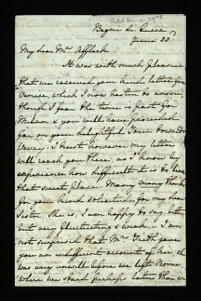 Bagni di Lucca
June 23
My dear Mrs Affleck
It was with much pleasure
that we received your kind letter from
Venice which I now hasten to answer
though I fear the time is past for
Milan & you will have proceeded
far on your delightful Tour towards
Vevey. I trust however my letter
will reach you there, as I know by
experience how difficult it is to leave
that sweet place. Many many thanks
for your kind solicitude for my dear
Sister. She is, I am happy to say, better
but very fluctuating & weak. I am
not surprised that Mrs gave
you an indifferent account of her, she
was very unwell before we left Rome
where we staid perhaps later than we